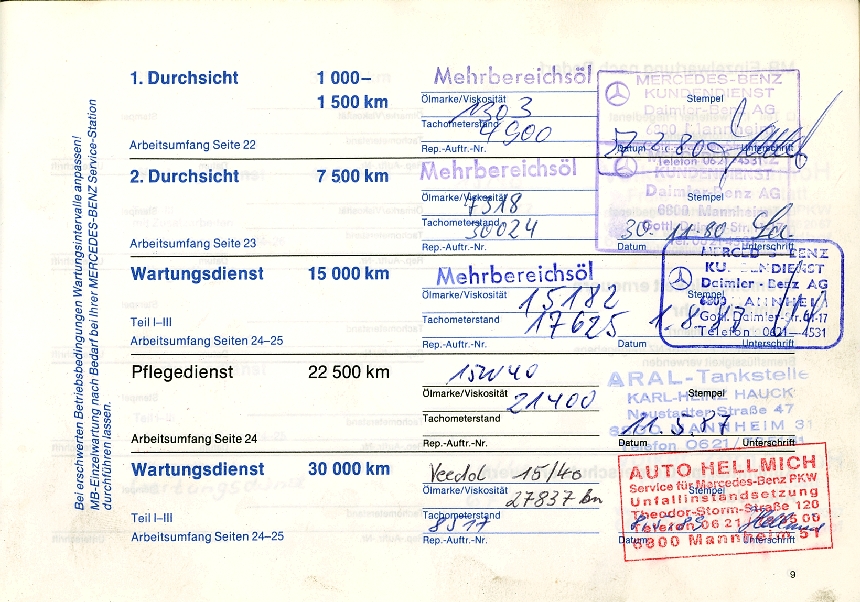 Bei erschwerten Betriebsbedingungen Wartungsintervalle anpassen!
MB-Einzelwartung nach Bedarf bei Ihrer MERCEDES-BENZ Service-Station
durchführen lassen.
1. Durchsicht 1 000– 1 500 km
Mehrbereichsöl
Ölmarke/Viskosität
1303
Tachometerstand
4900
Rep.-Auftr.-Nr.
Arbeitsumfang Seite 22
MERCEDES-BENZ
KUNDENDIENST
Stempel
Daimler-Benz AG
6800 Mannheim
Datum Unterschrift
Telefon 0621-4531
2. Durchsicht 7 500 km
Mehrbereichsöl
Ölmarke/Viskosität
7518
Tachometerstand
30024
Rep.-Auftr.-Nr.
Arbeitsumfang Seite 23
KUNDENDIENST
Daimler-Benz AG
Stempel
6800 Mannheim
30.11.80
Datum Unterschrift
Wartungsdienst 15 000 km
Mehrbereichsöl
Ölmarke/Viskosität
15182
Tachometerstand
17625
Rep.-Auftr.-Nr.
Teil I–III
Arbeitsumfang Seite 24–25
MERCEDES BENZ
KUNDENDIENST
Daimler-Benz AG
Stempel
6800 MANNHEIM
Gottl.Daimler-Str.
Telefon 0621-4531
Datum Unterschrift
Pflegedienst 22 500 km
15W40
Ölmarke/Viskosität
21400
Tachometerstand
Rep.-Auftr.-Nr.
Arbeitsumfang Seite 24
ARAL-Tankstelle
KARL-HEINZ HAUCK
Stempel
Neustadter Straße 47
MANNHEIM 31
11.5.87
Telefon 0621/
Datum Unterschrift
Wartungsdienst 30 000 km
Veedol 15/40
Ölmarke/Viskosität
27837 km
Tachometerstand
8517
Rep.-Auftr.-Nr.
Teil I–III
Arbeitsumfang Seite 24–25
AUTO HELLMICH
Service für Mercedes-Benz PKW
Stempel
Unfallinstandsetzung
Theodor-Storm-Straße 120
Telefon 0621
6800 Mannheim 51
Datum Unterschrift
9